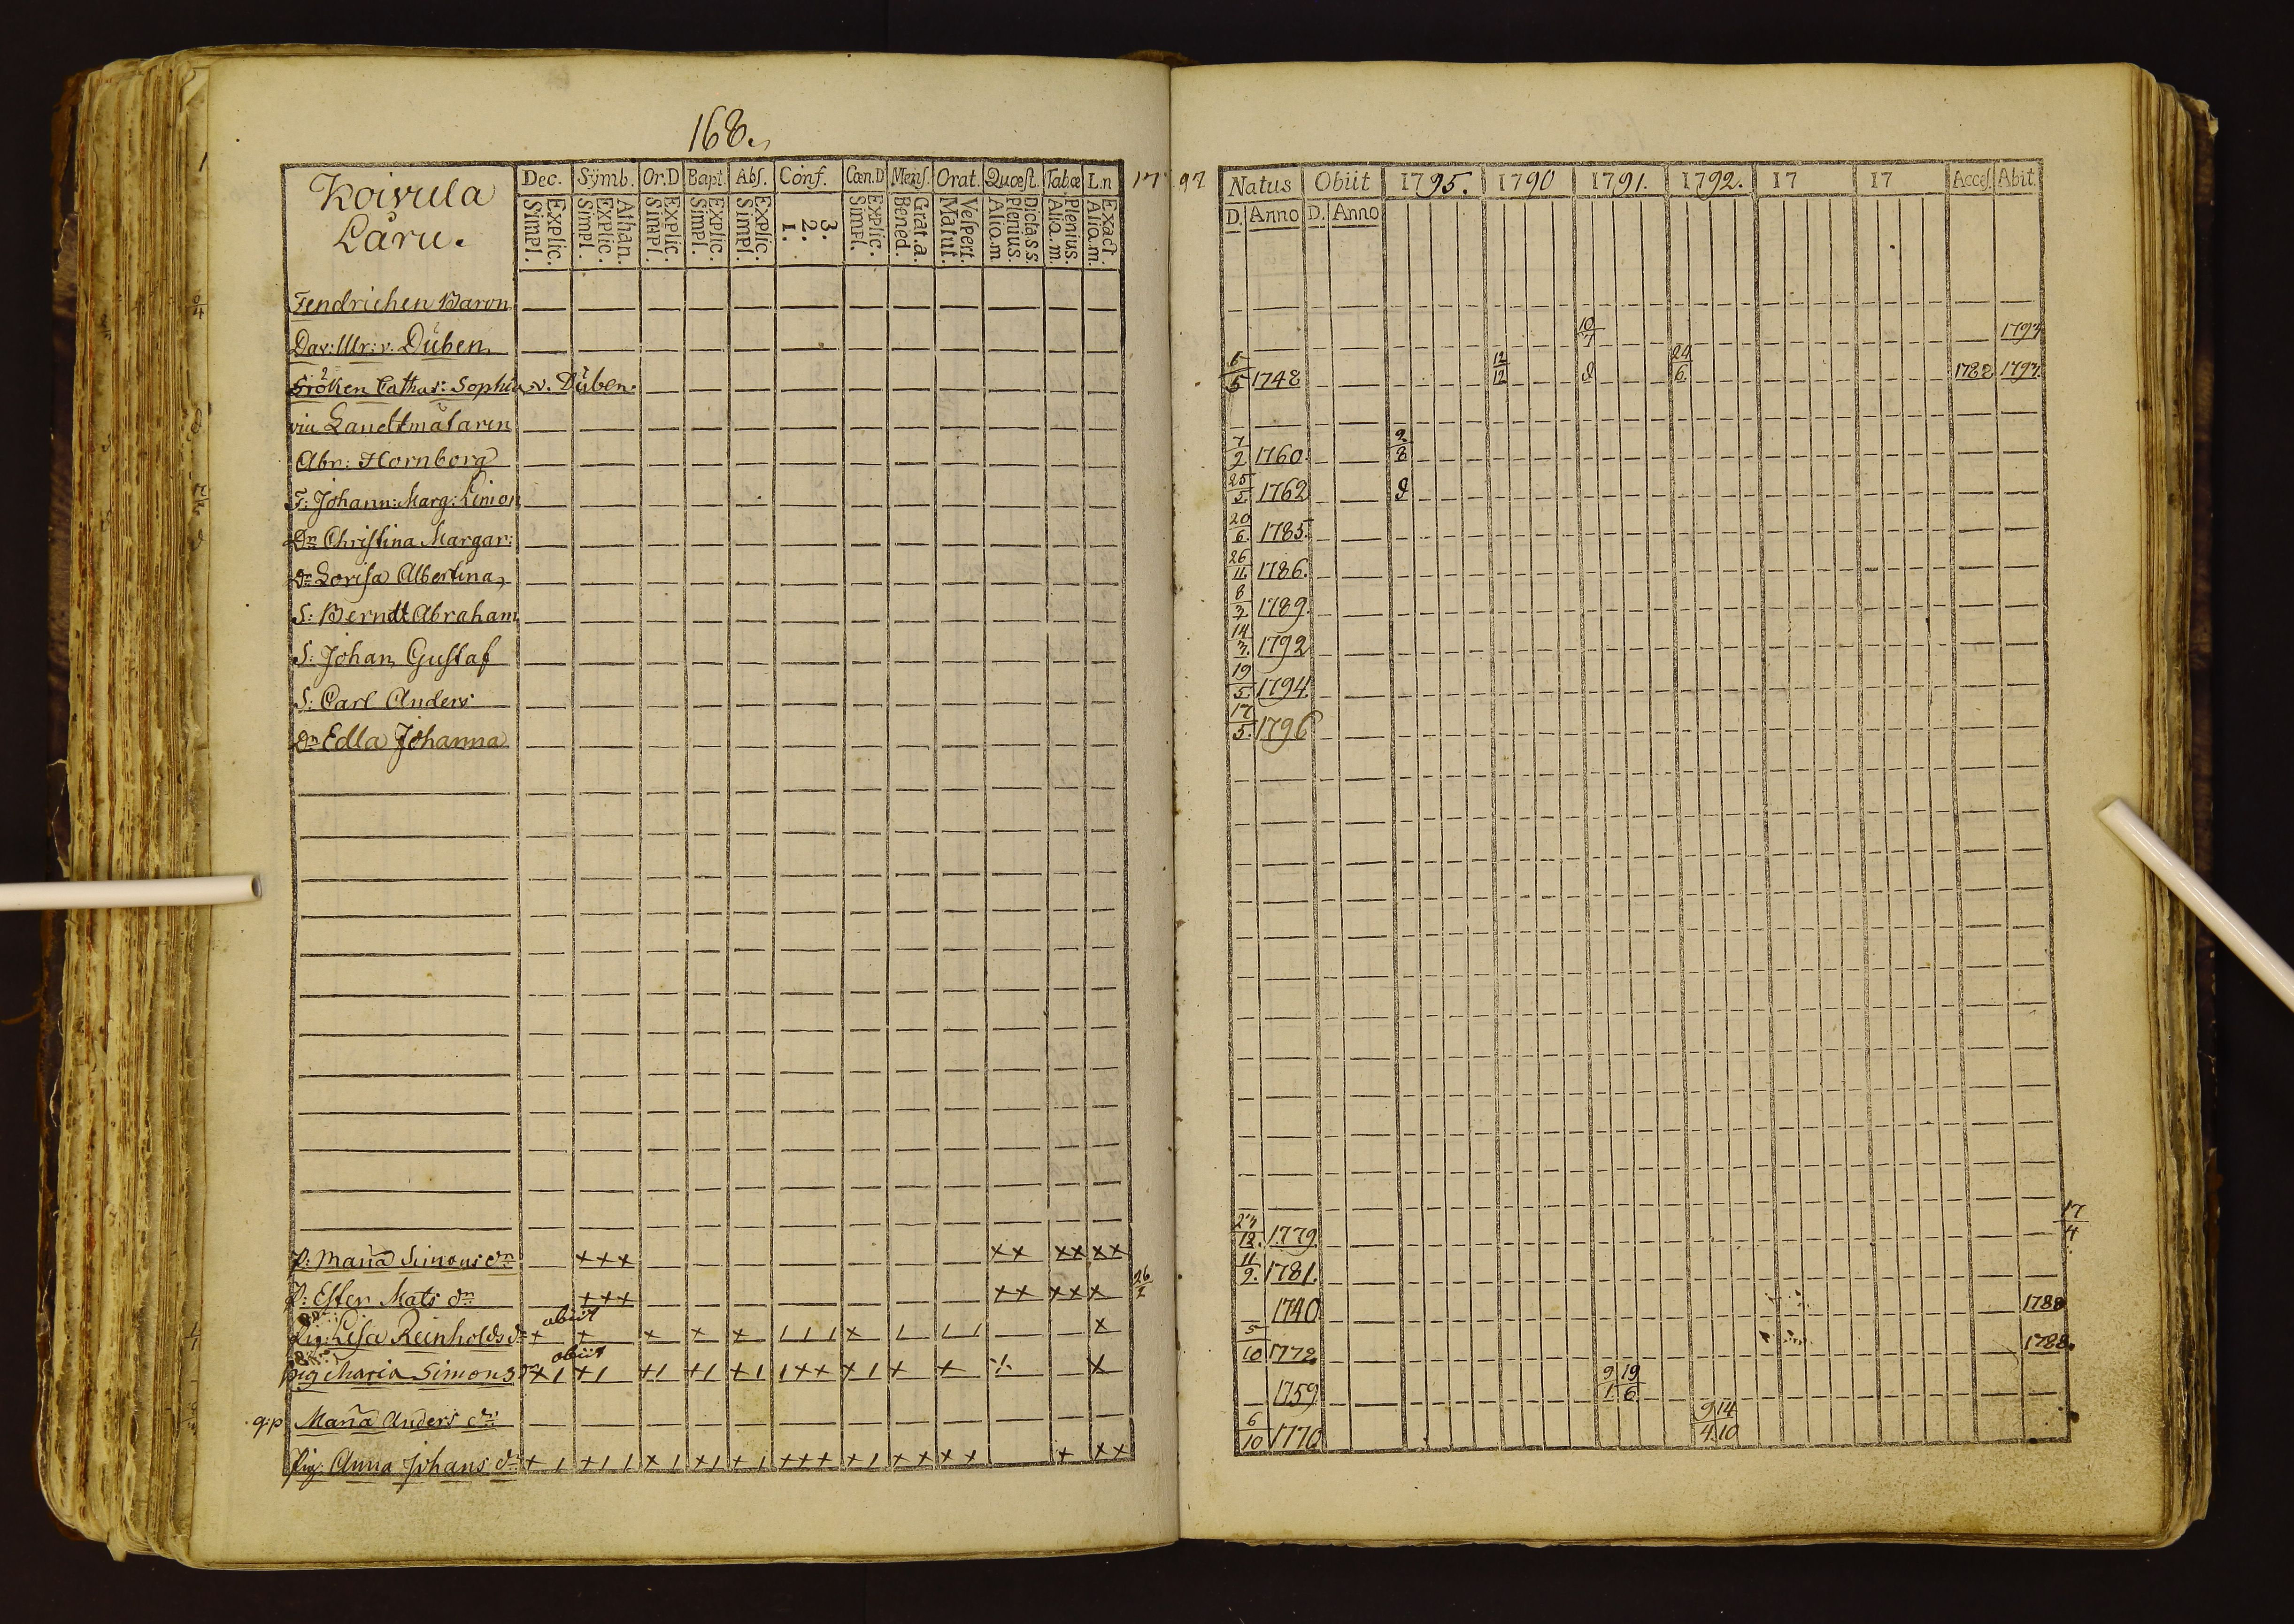 168.
Koivula
Låru.
Dec. Symb. Or.D Bapt. Abs. Conf. Cœn.D Mens. Orat. Quœst. Tab.œ L.n 17 97
Simpl. Explic. Simpl. Explic. Athan. Simpl. Explic. Simpl. Explic. Simpl. Explic. 1. 2. 3. Simpl. Explic. Bened. Grat.a. Matut. Vespert. Aliq.m Plenius. Dicta s s. Aliq.m. Plenius. Aliq.m. Exact.
Natus Obiit 1795. 1790 1791. 1792. 17 17 Acces. Abit.
D. Anno D. Anno
Fendrichen Baron
Dav: Ulr: v. Düben 10 1797
Fröken Cathar: Sophia v. Düben 6/5 1748 12/12 24/6. 1782 1797.
vice Landtmätaren
Abr: Hornborg 7/2 1760. 2/8
F: Johann: Marg: Limon 25/5. 1762
Dr Christina Margar: 20/6. 1785.
Dr Lovisa Albertina 26/11. 1786.
S: Berndt Abraham 8/3 1789.
S: Johan Gustaf 14/3. 1792
S: Carl Anders 19/5. 1794.
Dr Edla Johanna 17/5. 1796
P: Maria Simons dr +++ ++ ++ ++ 23/12. 1779. 17/4
P: Ester Mats dr +++ ++ ++ + 26/2 11/9. 1781.
abiit
Pig: Lisa Reinholds dr 1740. 1788
abiit
pig Maria Simons dr 5/10 1772. 1788.
q.p. Maria Anders dr 1759. 9/1 19/6.
Pig. Anna Johans dr 6/10 1770. 9/4 14/10